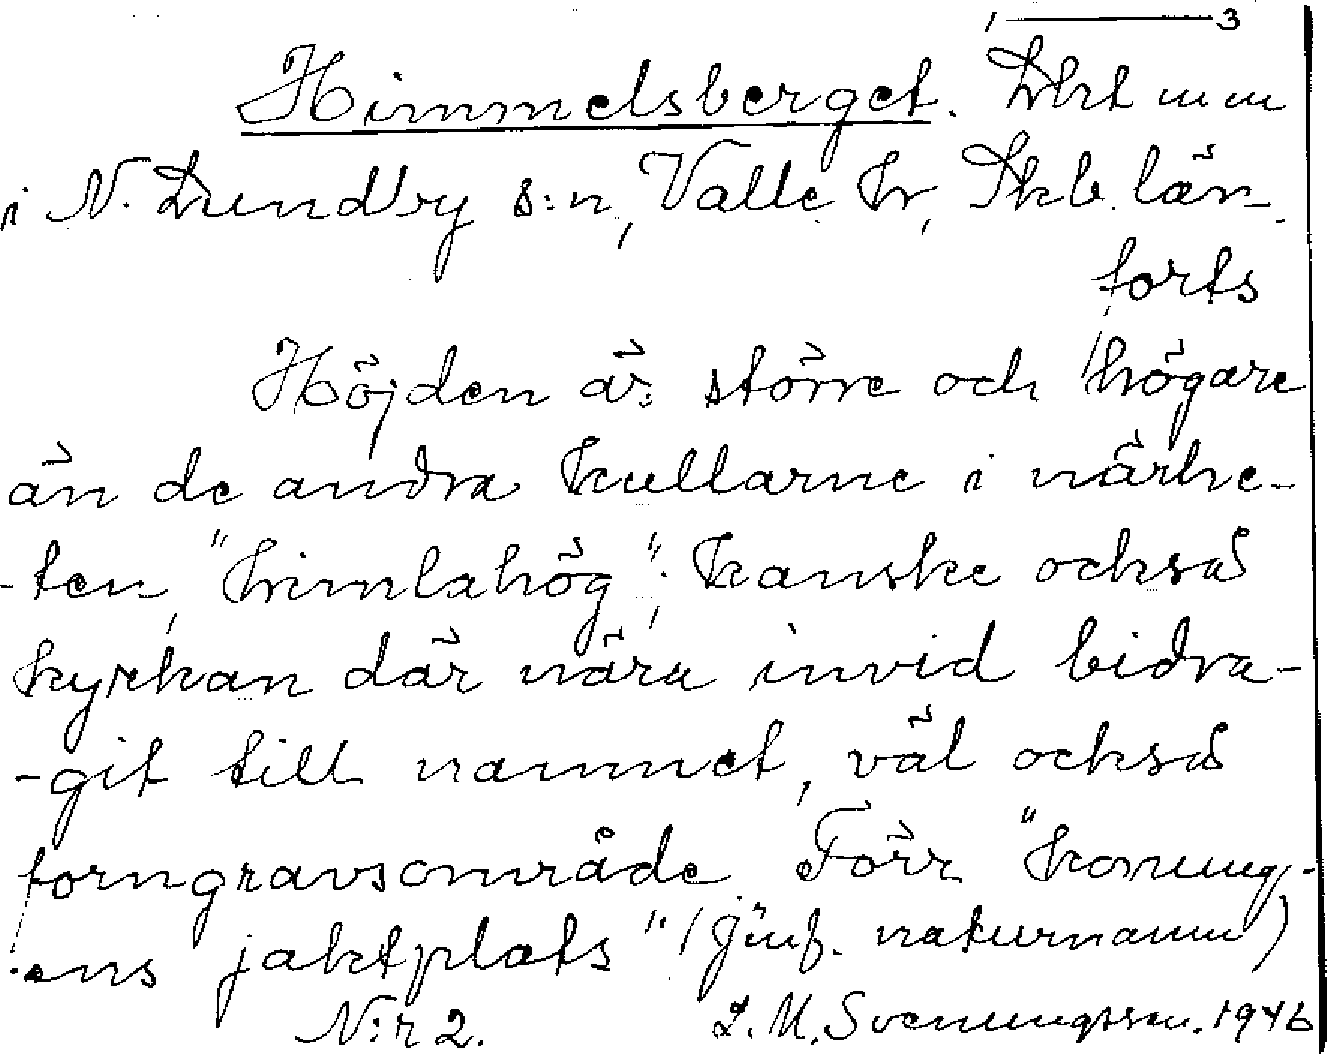 1 — 3
Himmelsberget.
i N. Lundby s:n, Valle hr, Skb. län.
forts
Höjden är större och högare
än de andra kullarne i närhe-
-ten, "himlahög"; kanske också
kyrkan där nära invid bidra-
-git till namnet, väl också
forngravsområde Förr "konung-
-ens jaktplats" (jämf. naturnamn)
N:r 2. L. M. Svenungsson. 1946